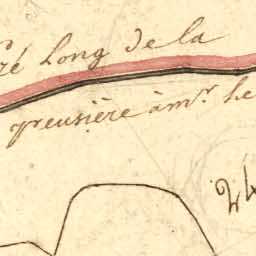 ré Long de la
preusière à mr. he
24